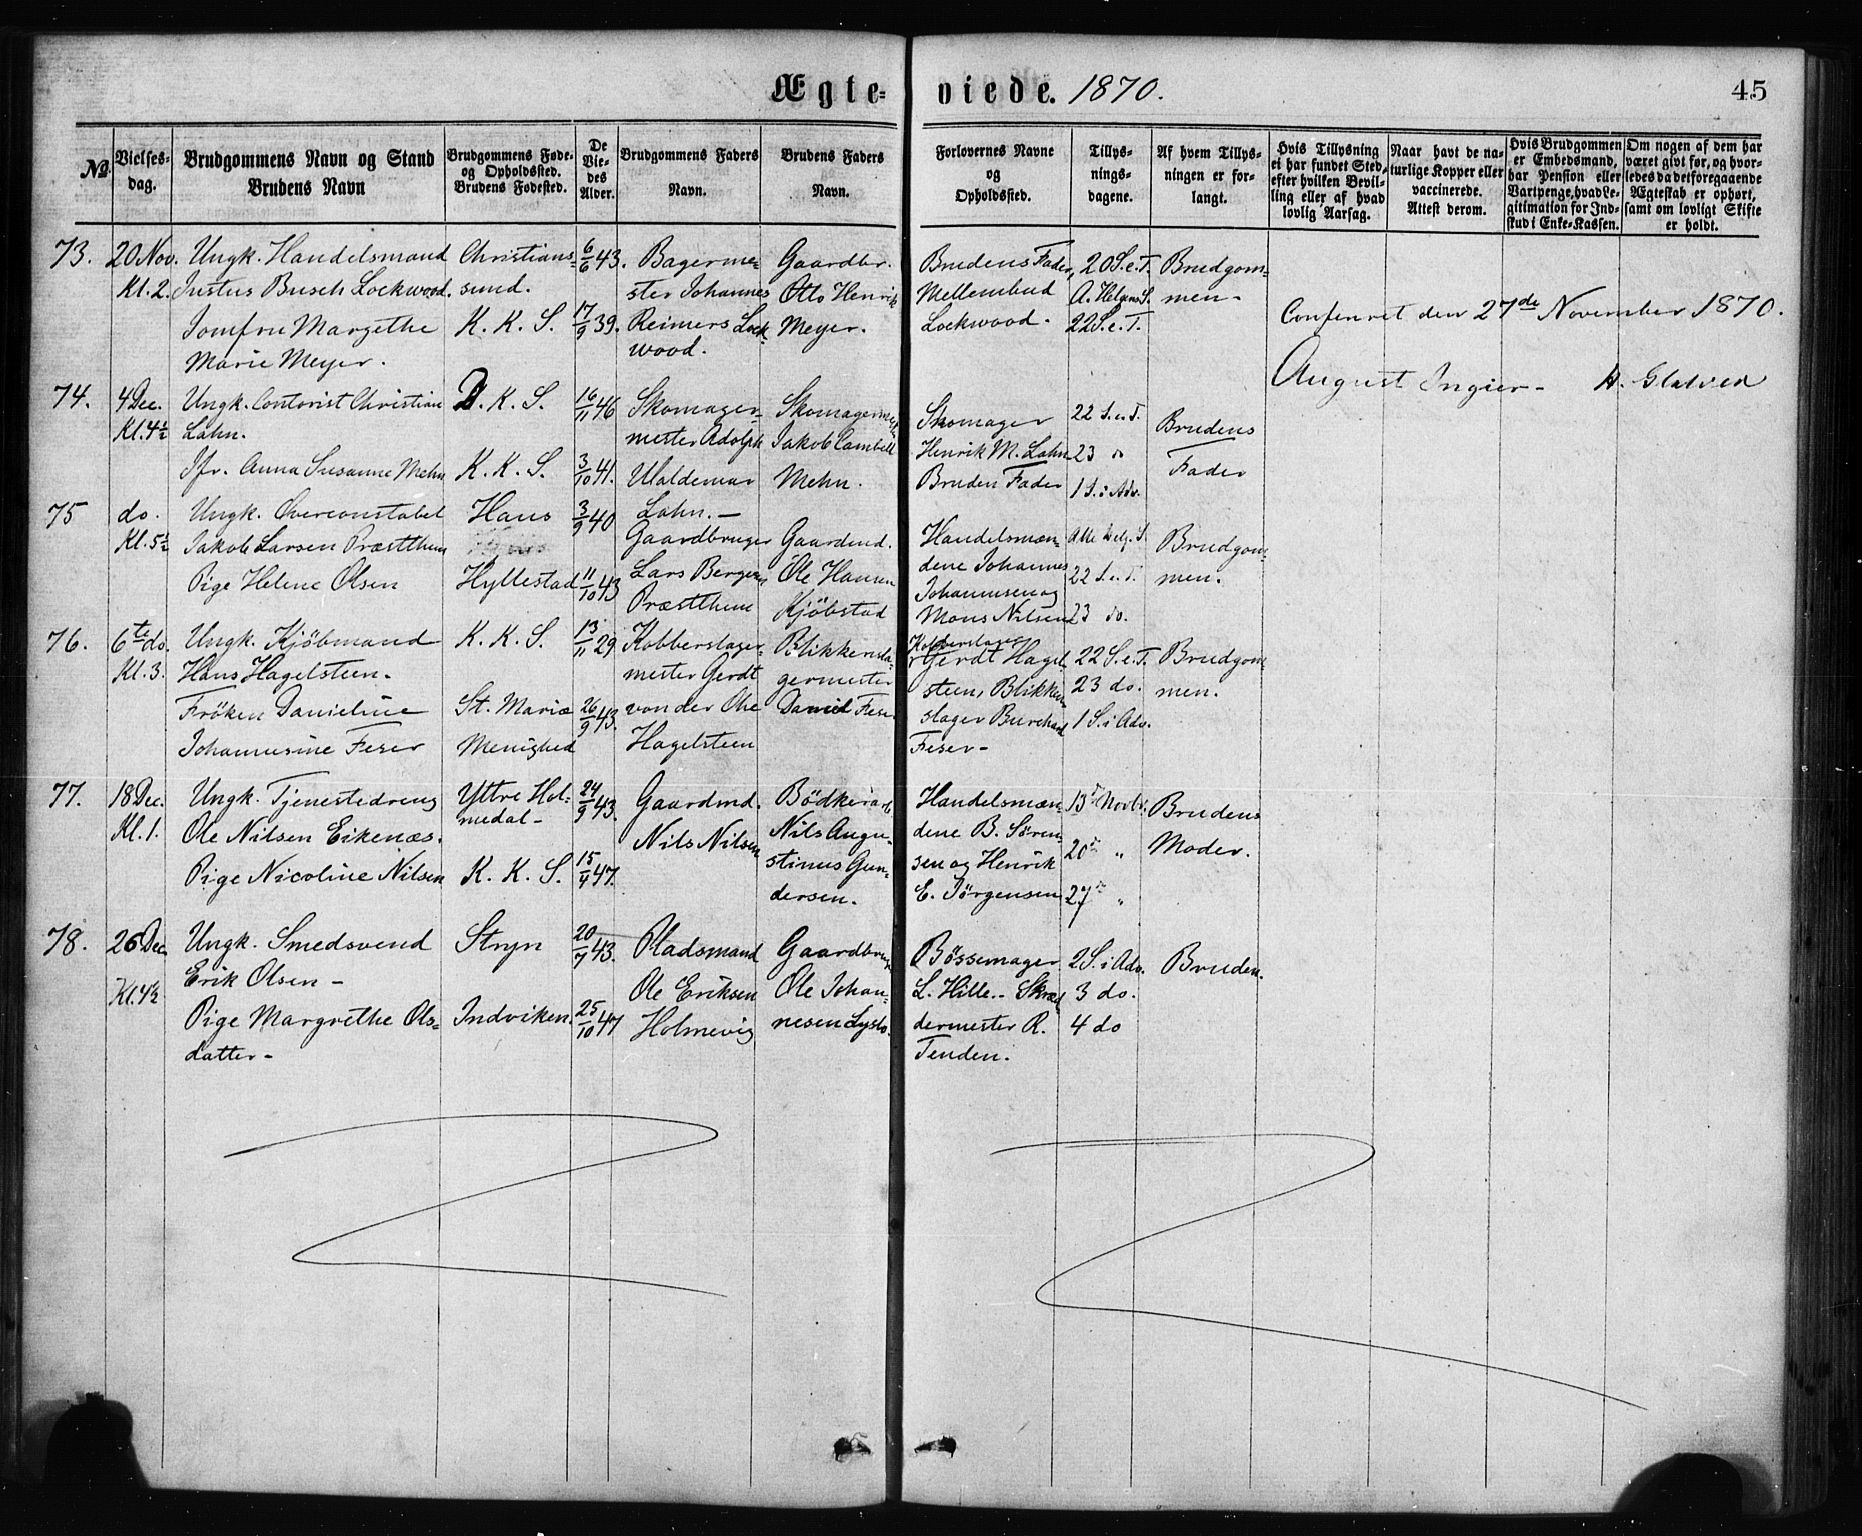 Ægte- viede. 1870. 45
№
Vielses-
dag.
Brudgommens Navn og Stand
Brudens Navn
Brudgommens Føde-
og Opholdssted.
Brudens Fødested.
De
Vie-
des
Alder.
Brudgommens Faders
Navn.
Brudens Faders
Navn.
Forlovernes Navne
og
Opholdssted.
Tillys-
nings-
dagene.
Af hvem Tillys-
ningen er for-
langt.
Hvis Tillysning
ei har fundet Sted,
efter hvilken Bevil-
ling eller af hvad
lovlig Aarsag.
Naar havt de na-
turlige Kopper eller
vaccinerede.
Attest derom.
Hvis Brudgommen
er Embedsmand,
har Pension eller
Vartpenge, hvad Le-
gitimation for Ind-
skud i Enke-Kassen.
Om nogen af dem har
været givt før, og hvor-
ledes da det foregaaende
Ægteskab er ophørt,
samt om lovligt Skifte
er holdt.
73.
20 Nov.
Kl. 2.
Ungk. Handelsmand
Justus Busch Lockwood.
Jomfru Margethe
Marie Meyer.
Christians-
sund.
K. K. S.
6/6 43.
17/9 39.
Bagerme-
ster Johannes
Reimers Lock
wood.
Gaardbr.
Otto Henrik
Meyer.
Brudens Fader,
Mellembud
Lockwood.
20 S. e. T.
A. Helgens S.
22 S. e. T.
Brudgom-
men.
Conferert den 27de November 1870.
August Ingier - H. Glatved
74.
4 Dec.
Kl. 4½
Ungk. Contorist Christian
Lahn.
Jfr. Anna Susanne Mehn
D. K. S.
K. K. S.
16/11 46
3/10 41.
Skomager-
mester Adolph
Waldemar
Lahn. -
Skomagermest
Jakob Cambell
Mehn.
Skomager
Henrik M. Lahn
Bruden Fader
22 S. e. T.
23 do
1 S. i Adv.
Brudens
Fader
75
do.
Kl. 5½
Ungk. Overconstabel
Jakob Larsen Præstthun
Pige Helene Olsen
Haus
Hyllestad
3/9 40
11/10 43
Gaardbruger
Lars Bergesen
Præstthun
Gaardmd.
Ole Hansen
Kjöbstad
Handelsmæn-
dene Johannes
Johannesen og
Mons Nilsen
Alle Helg. S.
22 S. e. T.
23 do.
Brudgom-
men.
76.
6te do.
Kl. 3.
Ungk. Kjöbmand
Hans Hagelsteen.
Fröken Danieline
Johannesine Feser
K. K. S.
St. Mariæ
Menighed
13/11 29
26/9 43.
Kobberslager-
mester Gerdt
von der Ohe
Hagelsteen
Blikkensla-
germester
Daniel Feser
Kobberslager
Gerdt Hagel
steen, Blikken
slager Burchard
Feser -
22 S. e. T.
23 do.
1 S. i Adv.
Brudgom-
men.
77.
18 Dec.
Kl. 1.
Ungk. Tjenestedreng
Ole Nilsen Eikenæs.
Pige Nicoline Nilsen
Yttre Hol-
medal -
K. K. S.
24/9 43.
15/4 47.
Gaardmd.
Nils Nilsen
Bödkerarb
Nils Augu-
stinus Gun-
dersen.
Handelsmæn-
dene B. Sören
sen og Henrik
E. Jörgensen
13de Novbr.
20de "
27de "
Brudens
Moder.
78.
26 Dec
Kl. 4½
Ungk. Smedsvend
Erik Olsen -
Pige Margrethe Ols-
datter -
Stryn
Indviken.
20/7 43.
25/10 47
Pladsmand
Ole Eriksen
Holmevig
Gaardbruger
Ole Johan-
nesen Lyslo.
Bössemager
L. Hille. - Skræd
dermester R.
Tenden.
2 S. i Adv.
3 do.
4 do
Bruden.